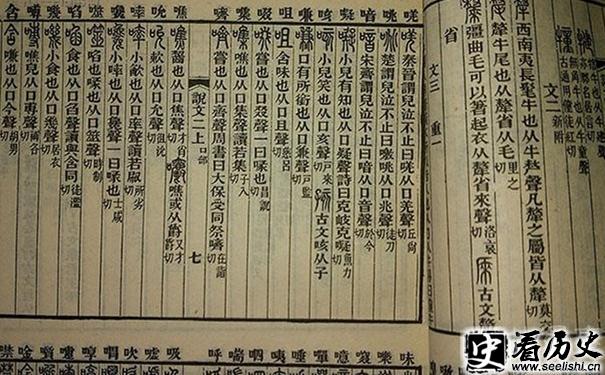 文二 新附
西南夷長髦牛也从牛𠩺聲凡犛之屬皆从犛 莫交切
犛牛尾也从犛省从毛 里之切
彊曲毛可以箸起衣从犛省來聲 洛哀切 古文斄
省
文三 重一
秦晉謂兒泣不止曰唴从口羌聲 丘尚切
謂兒泣不止曰噭咷从口兆聲 徒刀切
宋齊謂兒泣不止曰喑从口音聲 於今切
小兒有知也从口疑聲詩曰克岐克嶷 魚力切
小兒笑也从口亥聲 戶來切 古文咳从子
口有所銜也从口兼聲 戶監切
含味也从口且聲 慈呂切
嘗也从口叕聲一曰喙也 昌說切
噍也从口集聲讀若集 子入切
嘗也从口齊聲周書曰大保受同祭嚌 在詣切
說文二上 口部 七
也从口焦聲 才肖切 噍或从爵 又才爵切
欶也从口允聲 徂沇切
小㱃也从口率聲讀若㕞 所劣切
小啐也从口毚聲一曰喙也 士咸切
啗也从口筮聲一曰喙也 時制切
食也从口臽聲讀與含同 徒濫切
小食也从口幾聲 居衣切
噍皃从口尃聲 補各切
嗛也从口今聲 胡男切
味 噫 嘽 唾 咦 呬 喘 呼 吸 噓 吹 喟 啍 嚏 噤
看历史
www.seelishi.cn